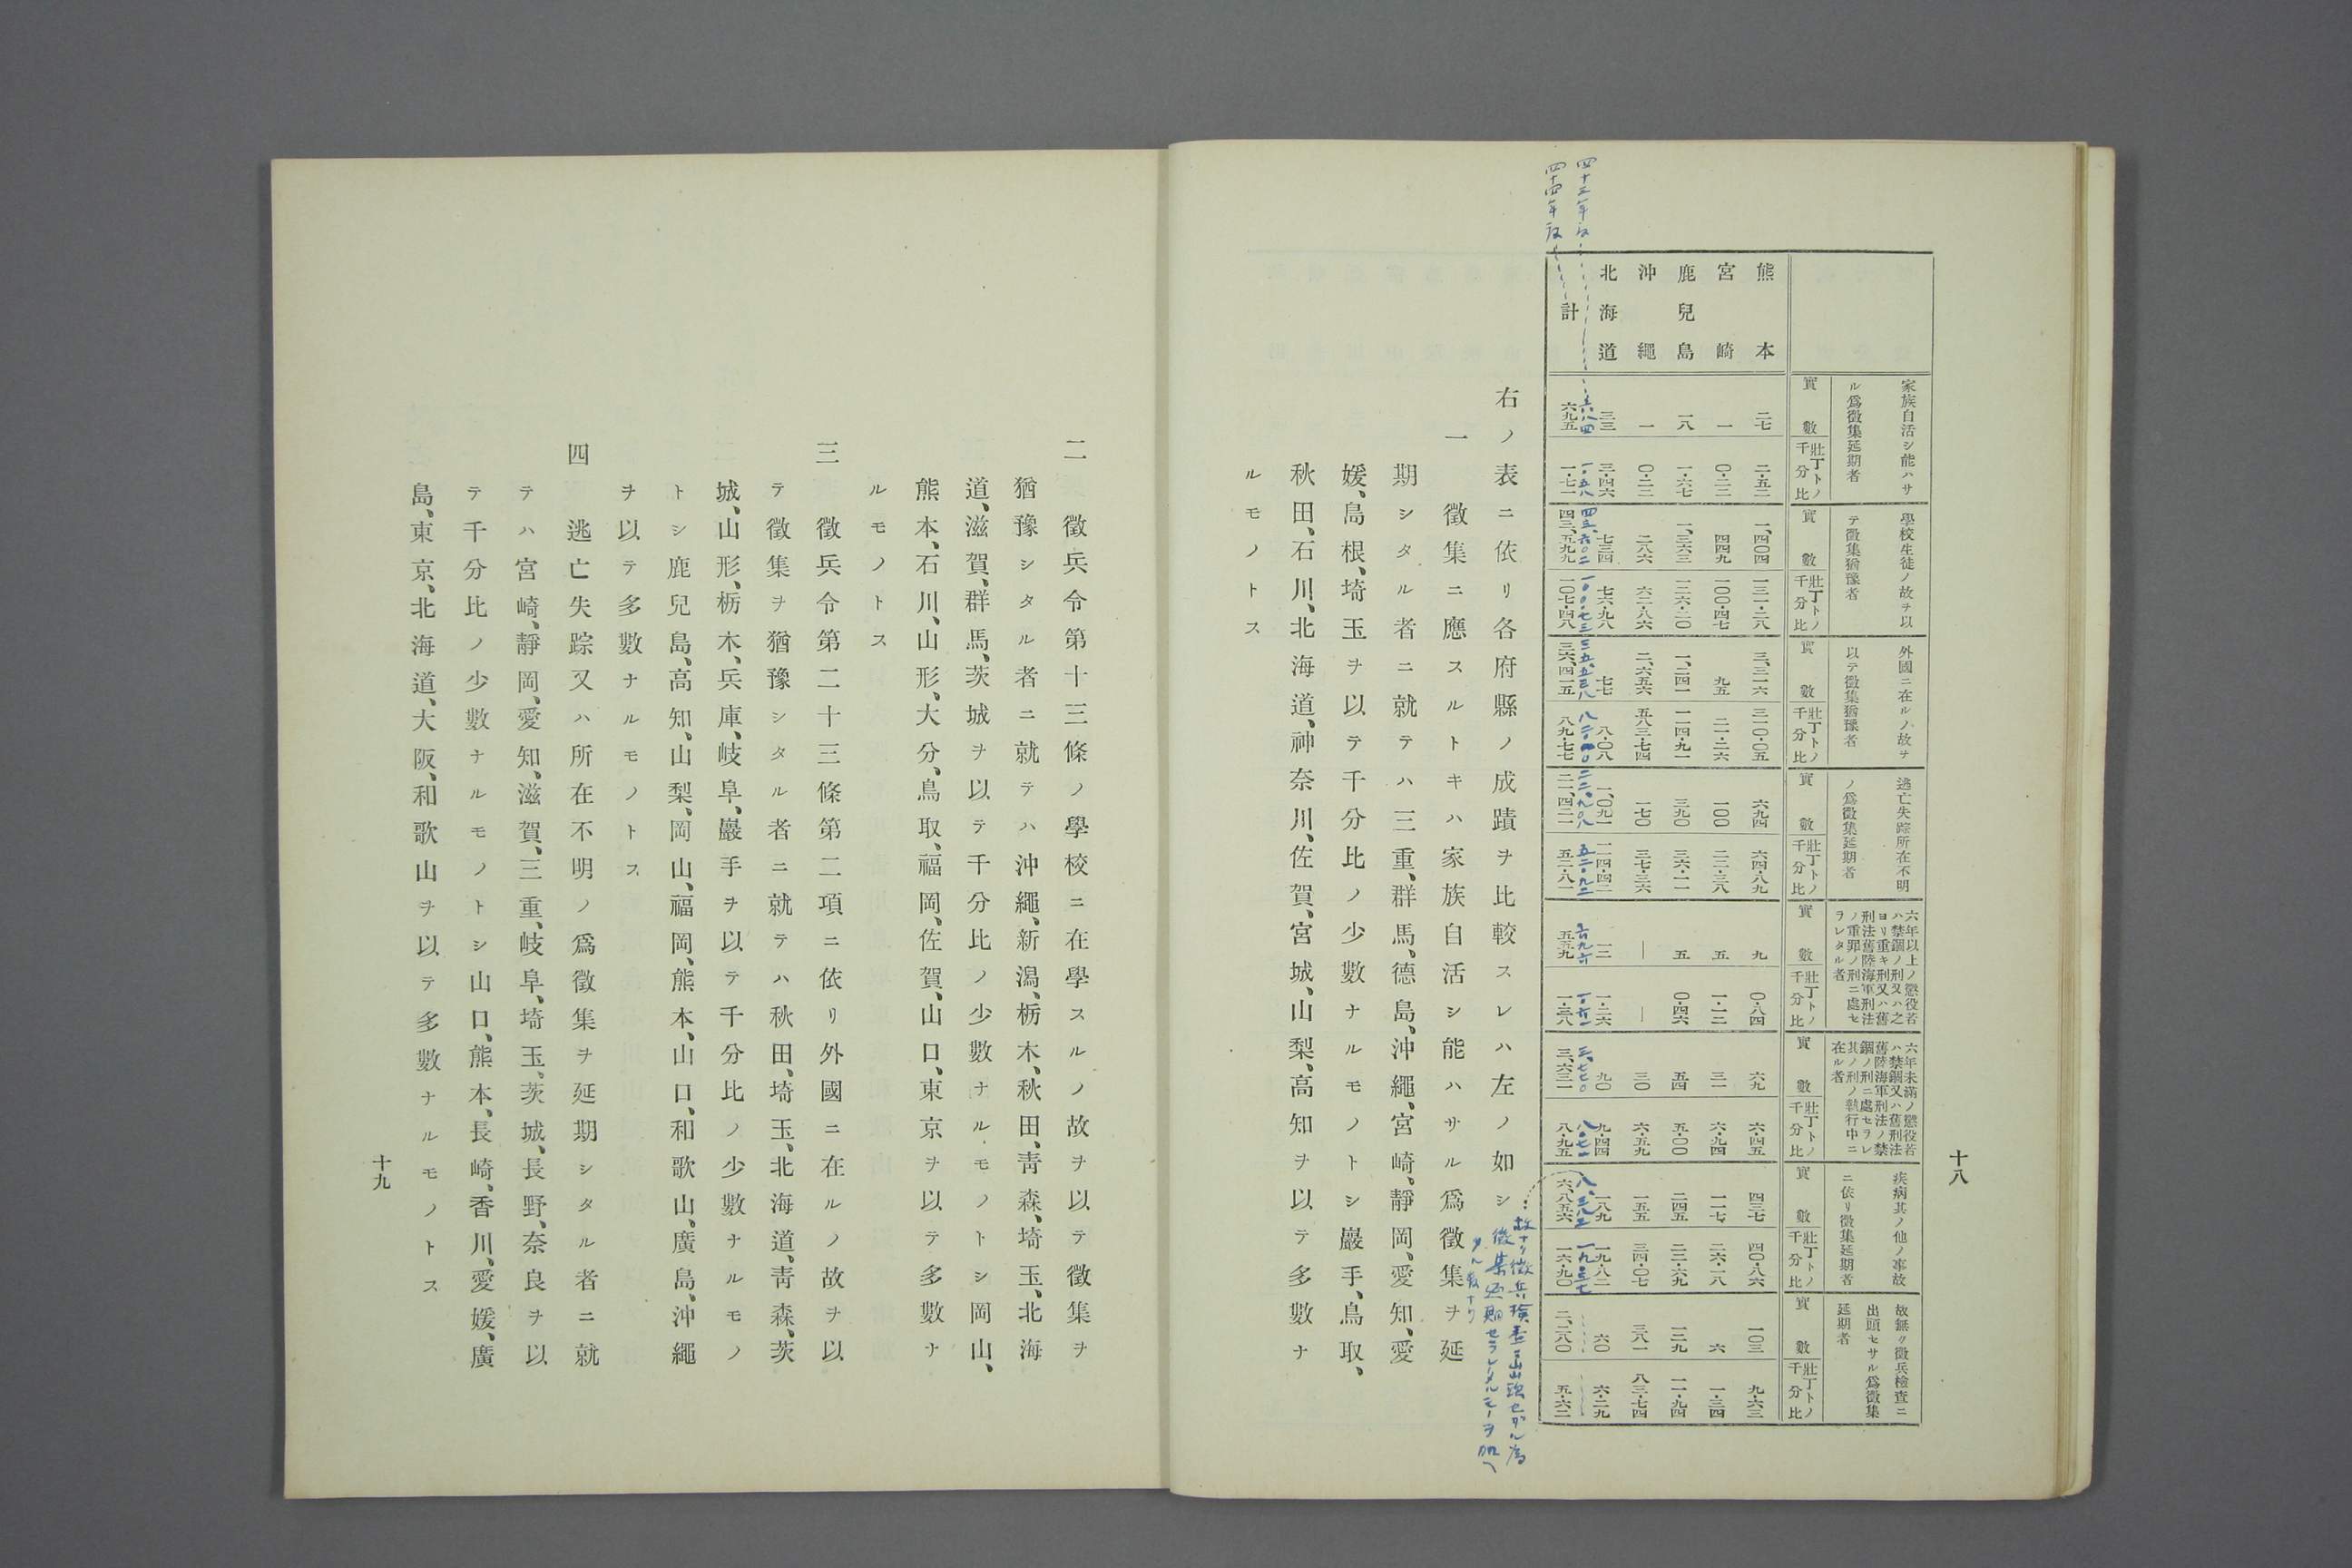 十八
家族自活シ能ハサ
ル爲徵集延期者
學校生徒ノ故ヲ以
テ徵集猶豫者
外國ニ在ルノ故ヲ
以テ徵集猶豫者
逃亡失踪所在不明
ノ爲徵集延期者
六年以上ノ懲役若
ハ禁錮ノ刑又ハ之
ヨリ重キ刑又ハ舊
刑法舊陸海軍刑法
ノ重罪ノ刑ニ處セ
ラレタル者
六年未滿ノ懲役若
ハ禁錮又ハ舊刑法
舊陸海軍刑法ノ禁
錮ノ刑ニ處セラレ
其ノ刑ノ執行中ニ
在ル者
疾病其ノ他ノ事故
ニ依リ徵集延期者
故無ク徵兵檢査ニ
出頭セサル爲徵集
延期者
實數 壯丁トノ千分比 實數 壯丁トノ千分比 實數 壯丁トノ千分比 實數 壯丁トノ千分比 實數 壯丁トノ千分比 實數 壯丁トノ千分比 實數 壯丁トノ千分比 實數 壯丁トノ千分比
熊本 二七 二・五二 一、四〇四 一三一・二八 三、三一六 三一〇・〇五 六九四 六四・八九 九 〇・八四 六九 六・四五 四三七 四〇・八六 一〇三 九・六三
宮崎 一 〇・二二 四四九 一〇〇・四七 九五 二一・二六 一〇〇 二二・三八 五 一・一二 三一 六・九四 一一七 二六・一八 六 一・三四
鹿兒島 一八 一・六七 一、三六三 一二六・二〇 一、二四一 一一四・九一 三九〇 三六・一一 五 〇・四六 五四 五・〇〇 二四五 二二・六九 一二九 一一・九四
沖繩 一 〇・二二 二八六 六二・八六 二、六五六 五八三・七四 一七〇 三七・三六 ― ― 三〇 六・五九 一五五 三四・〇七 三八一 八三・七四
北海道 三三 三・四六 七三四 七六・九八 七七 八・〇八 一、〇九一 一一四・四二 一二 一・二六 九〇 九・四四 一八九 一九・八二 六〇 六・二九
四十三年度 六八四 一・五八 四三、六〇二 一〇〇・七三 三五、五三八 八二・一〇 二二、九〇八 五二・九二 六九六 一・六一 三、七七〇 八・七一 八、三八三 一九・三七
四十四年度 計 六九五 一・七一 四三、五九九 一〇七・四八 三六、四一五 八九・七七 二一、四二一 五二・八一 五五九 一・三八 三、六三一 八・九五 六、八五六 一六・九〇 二、二八〇 五・六二
故ナク徵兵檢査ニ出頭セサル爲
徵集延期セラレタルモノヲ加ヘ
タル數ナリ
右ノ表ニ依リ各府縣ノ成蹟ヲ比較スレハ左ノ如シ
一 徵集ニ應スルトキハ家族自活シ能ハサル爲徵集ヲ延
期シタル者ニ就テハ三重、群馬、德島、沖繩、宮崎、靜岡、愛知、愛
媛、島根、埼玉ヲ以テ千分比ノ少數ナルモノトシ巖手、鳥取、
秋田、石川、北海道、神奈川、佐賀、宮城、山梨、高知ヲ以テ多數ナ
ルモノトス
二 徵兵令第十三條ノ學校ニ在學スルノ故ヲ以テ徵集ヲ
猶豫シタル者ニ就テハ沖繩、新潟、栃木、秋田、靑森、埼玉、北海
道、滋賀、群馬、茨城ヲ以テ千分比ノ少數ナルモノトシ岡山、
熊本、石川、山形、大分、鳥取、福岡、佐賀、山口、東京ヲ以テ多數ナ
ルモノトス
三 徵兵令第二十三條第二項ニ依リ外國ニ在ルノ故ヲ以
テ徵集ヲ猶豫シタル者ニ就テハ秋田、埼玉、北海道、靑森、茨
城、山形、栃木、兵庫、岐阜、巖手ヲ以テ千分比ノ少數ナルモノ
トシ鹿兒島、高知、山梨、岡山、福岡、熊本、山口、和歌山、廣島、沖繩
ヲ以テ多數ナルモノトス
四 逃亡失踪又ハ所在不明ノ爲徵集ヲ延期シタル者ニ就
テハ宮崎、靜岡、愛知、滋賀、三重、岐阜、埼玉、茨城、長野、奈良ヲ以
テ千分比ノ少數ナルモノトシ山口、熊本、長崎、香川、愛媛、廣
島、東京、北海道、大阪、和歌山ヲ以テ多數ナルモノトス
十九